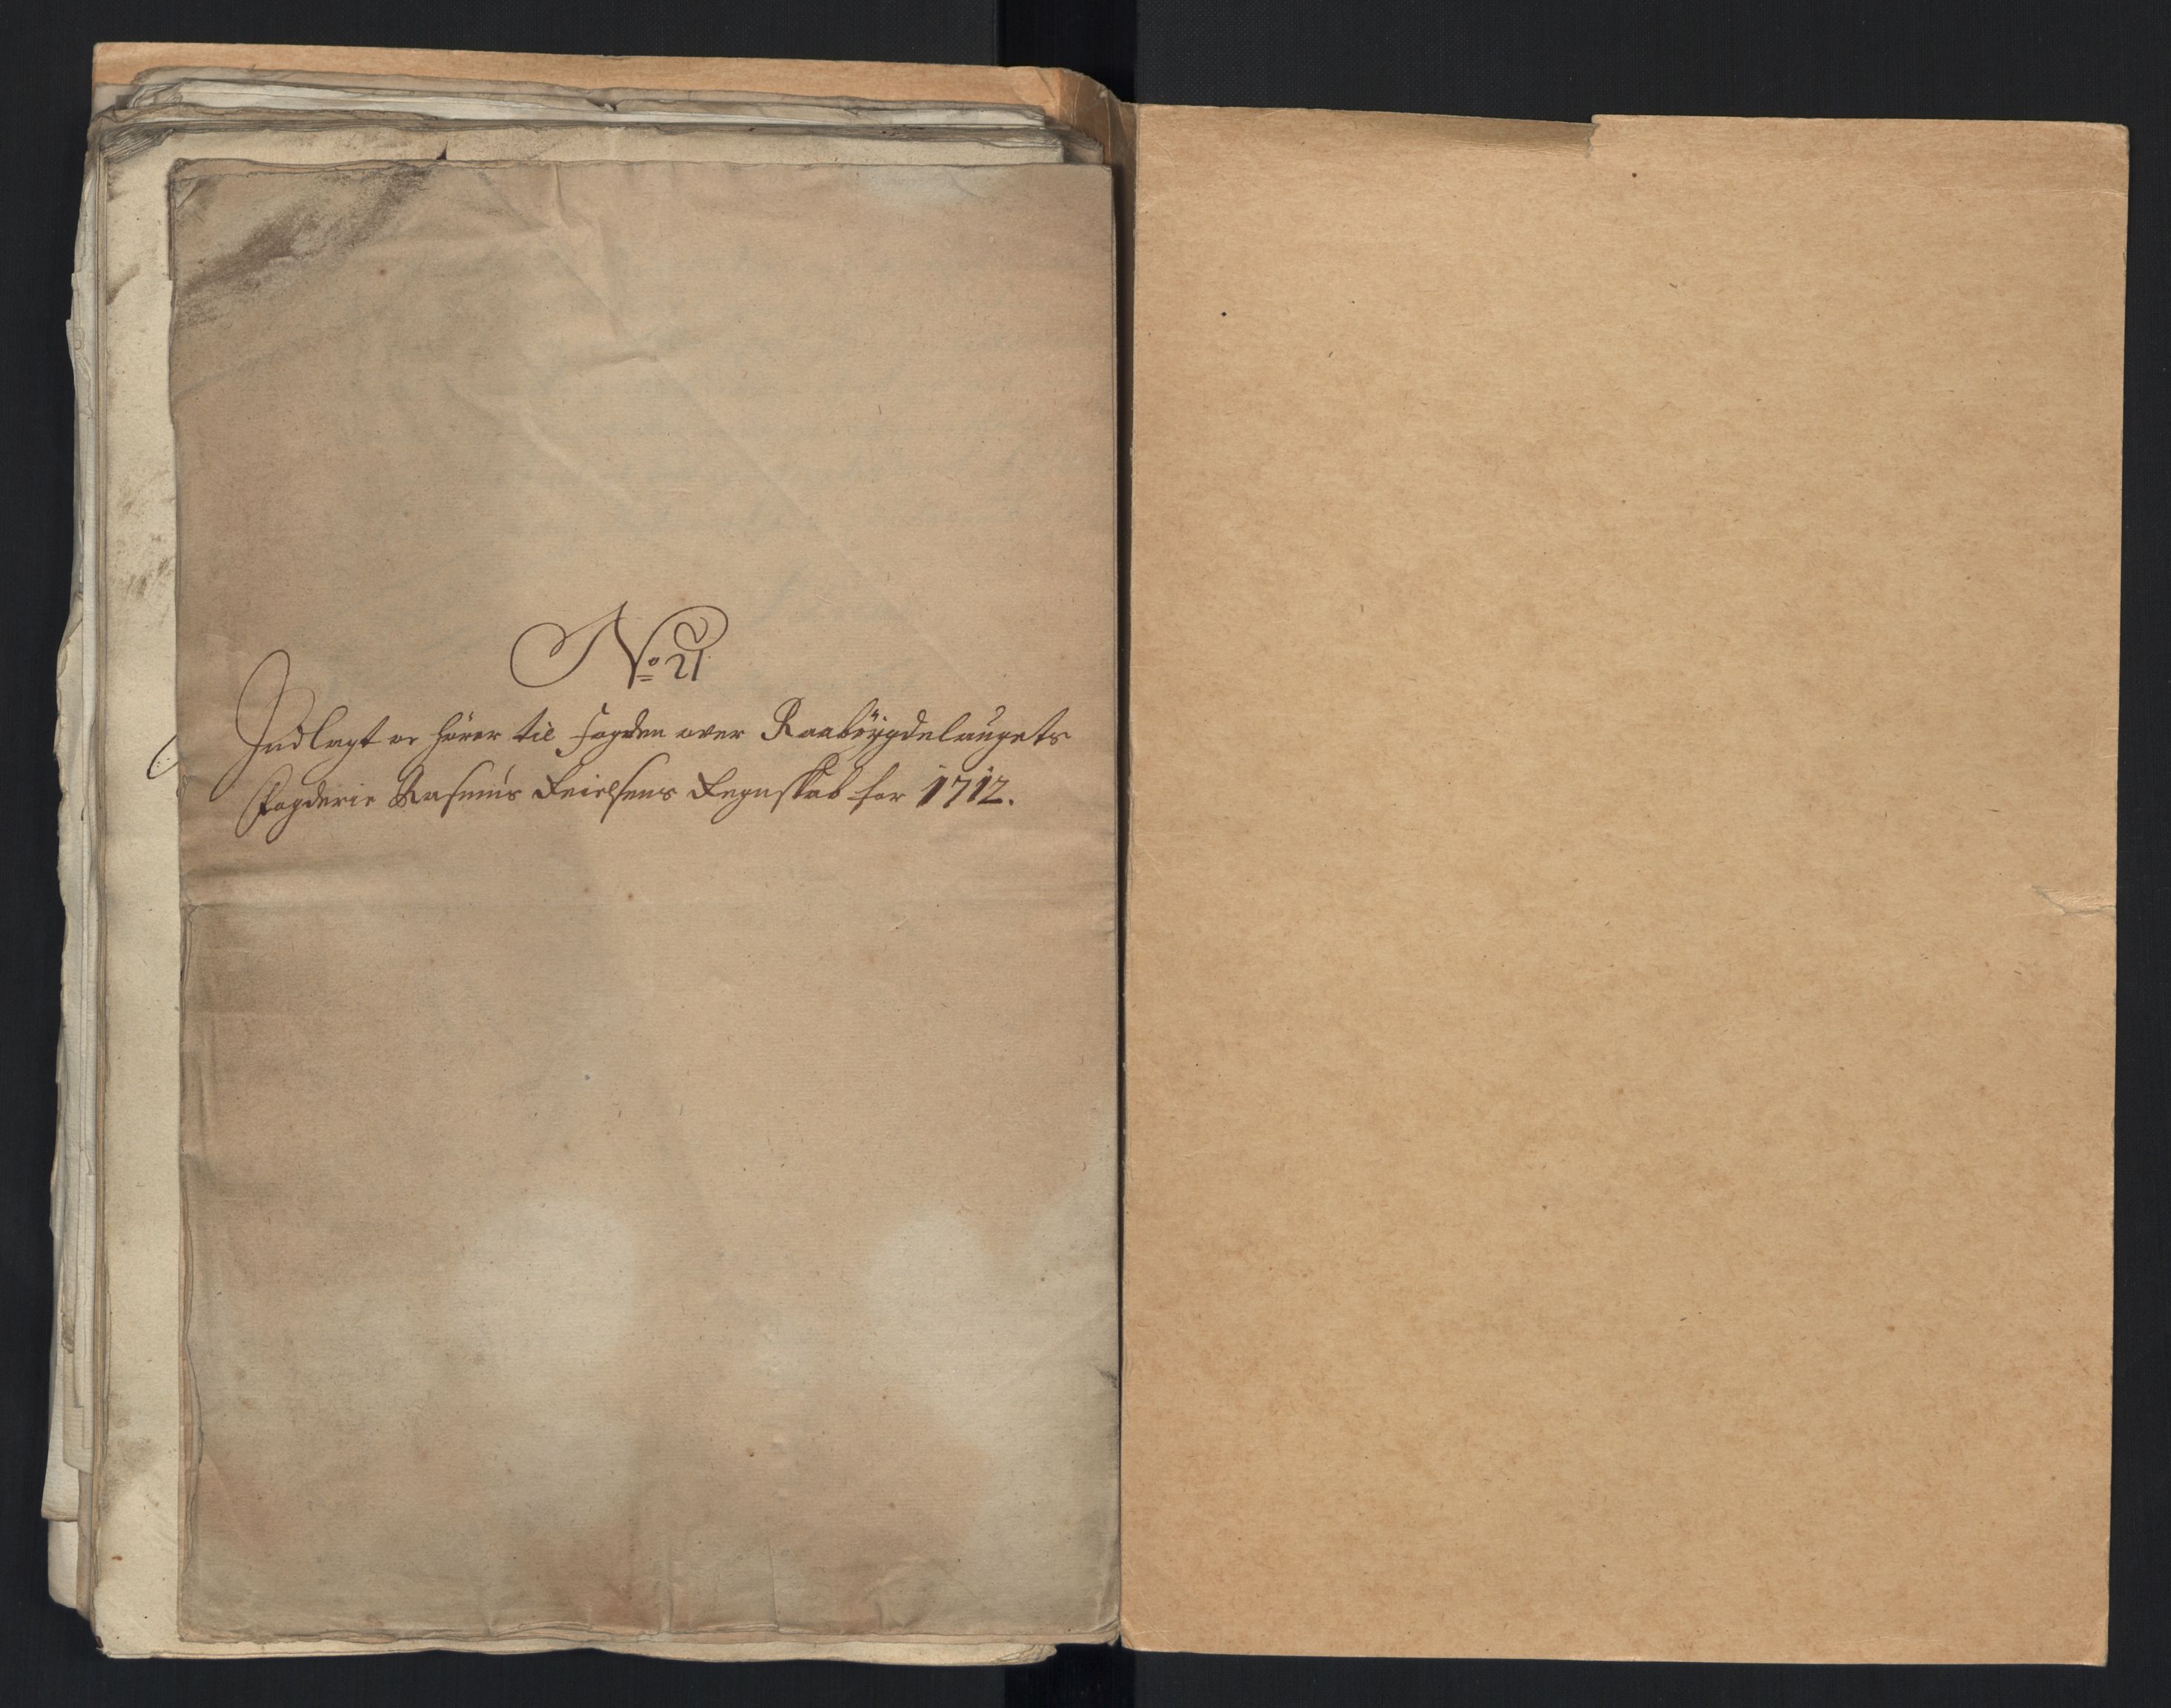 No 21
Indlagt oc hörer til fogden over Raaböygdelaugets
Fogderie Rasmus Regnskab for 1712.